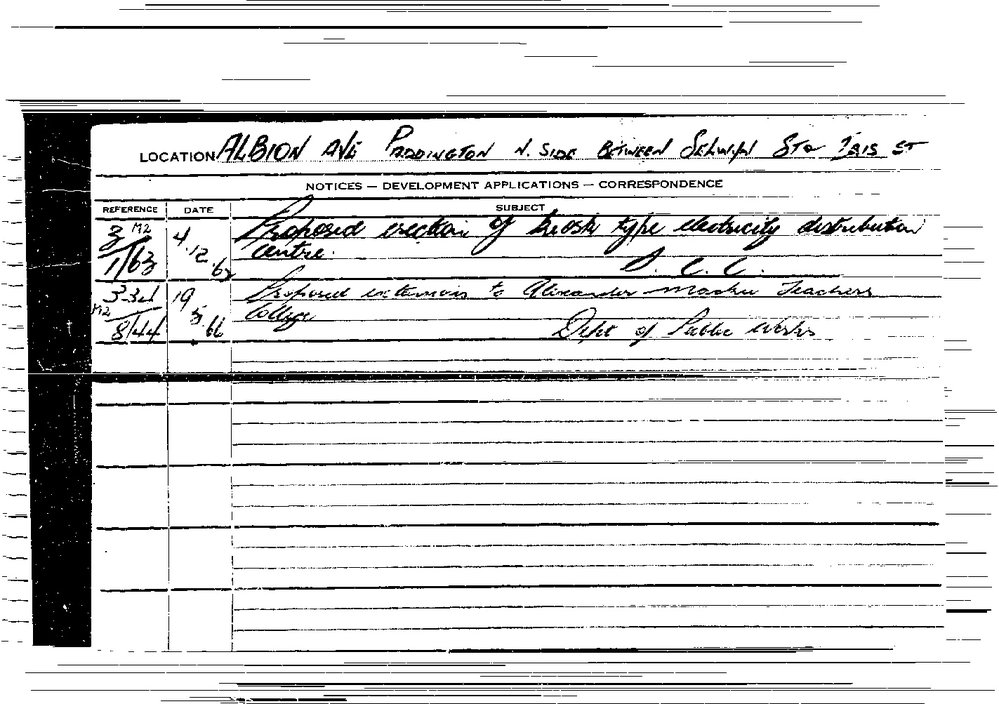 LOCATION ALBION AVE PADDINGTON N. SIDE BETWEEN SELWYN ST & IRIS ST
NOTICES — DEVELOPMENT APPLICATIONS — CORRESPONDENCE
REFERENCE DATE SUBJECT
3 M2 4 Proposed erection of kiosk type electricity distribution
1/63 .12. centre.
63 S. C. C.
334 19 Proposed extensions to Alexander Mackie Teachers
M2 5 College
8/44 .66 Dept of Public Works